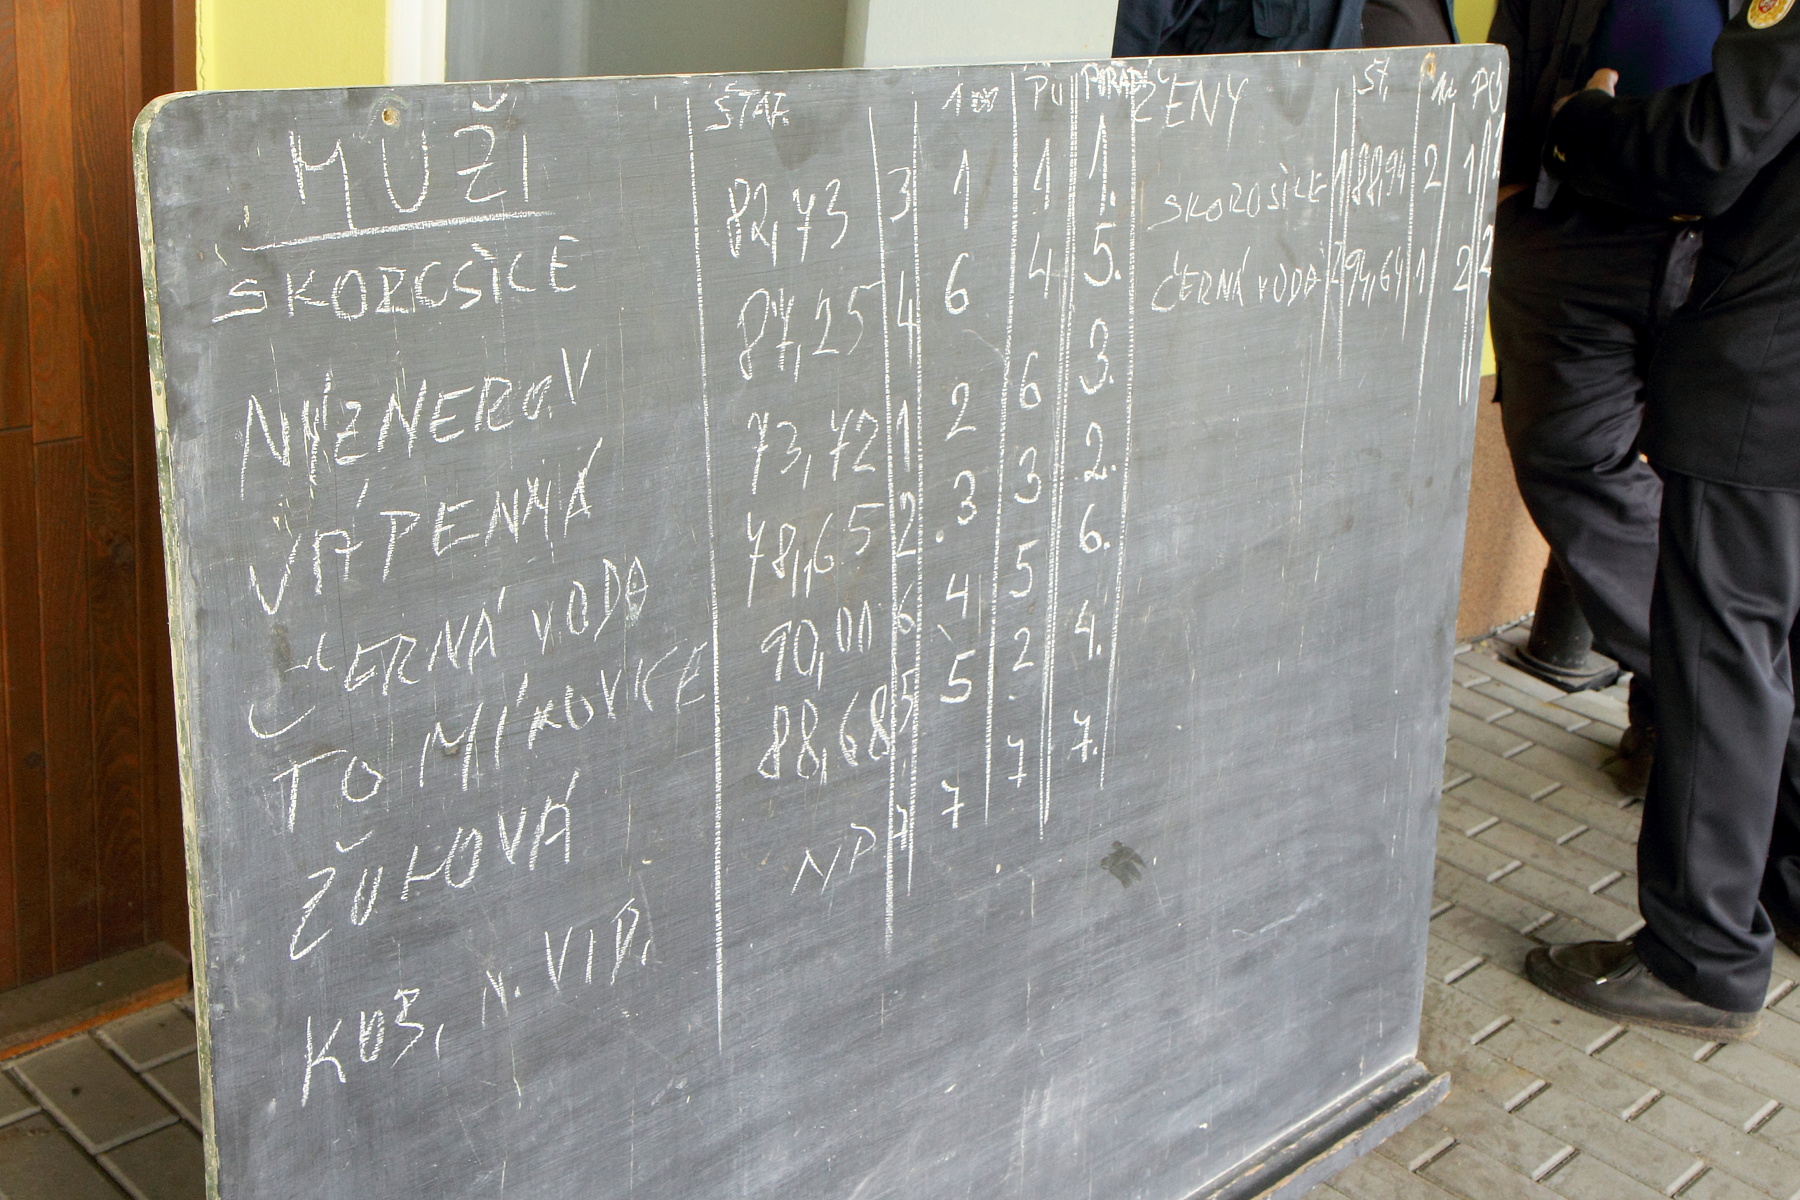 MUŽI ŠTAF. PÚ POŘADÍ ŽENY ŠT. PÚ
SKOROSICE 82,73 3 1 1 1. SKOROSICE 1 88,94 2 1
NÝZNEROV 87,25 4 6 4 5. ČERNÁ VODA 2 94,64 1 2 2
VÁPENNÁ 73,72 1 2 6 3.
ČERNÁ VODA 78,65 2 3 3 2.
TOMÍKOVICE 90,00 6 4 5 6.
ŽULOVÁ 88,68 5 5 2 4.
KOB. N. VID. NP 7 7 7 7.